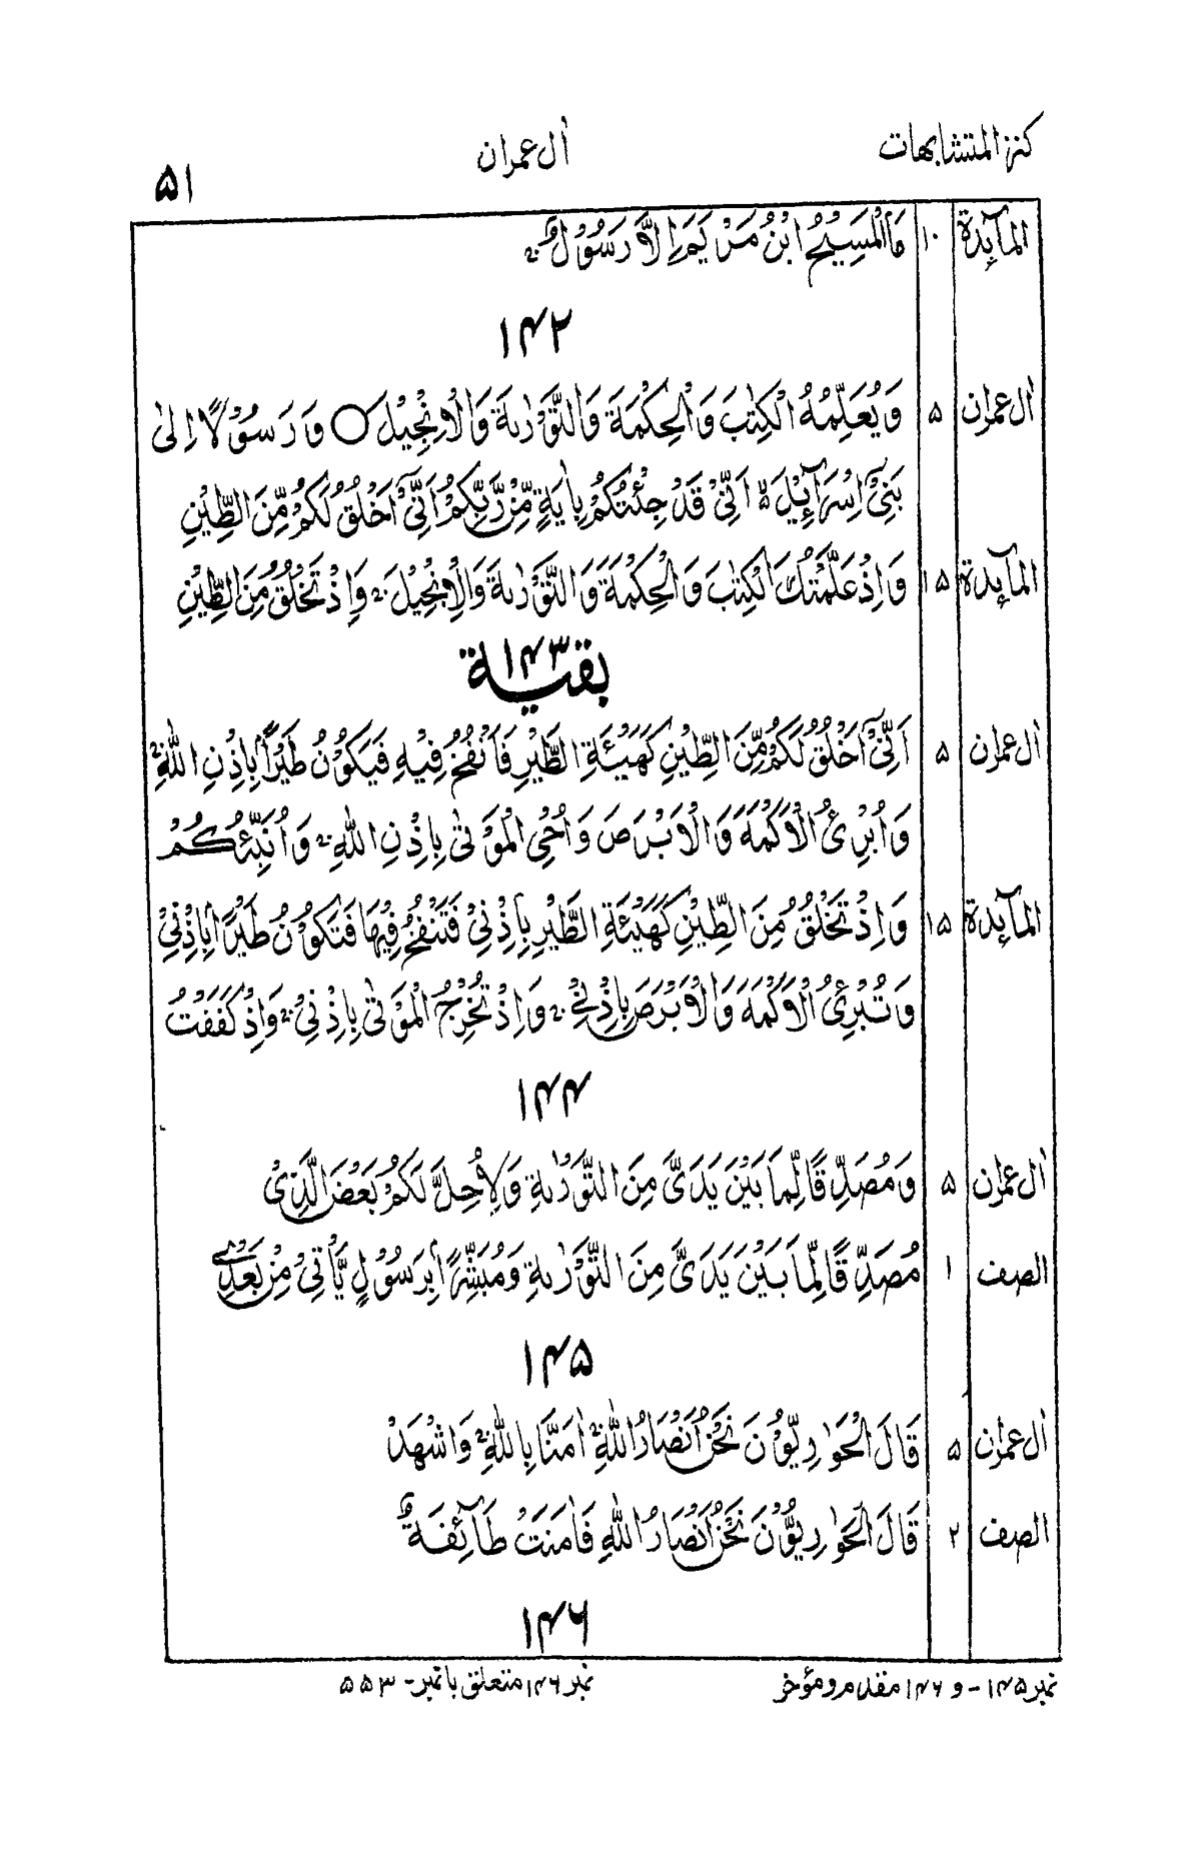 كنز المتشابهات
اٰل عمران
۵۱
المآئدة ۱۰ مَا الْمَسِيْحُ ابْنُ مَرْيَمَ اِلَّا رَسُوْلٌ ۚ
۱۴۲
اٰل عمران ۵ وَيُعَلِّمُهُ الْكِتٰبَ وَالْحِكْمَةَ وَالتَّوْرٰىةَ وَالْاِنْجِيْلَ ○ وَ رَسُوْلًا اِلٰى
بَنِيْٓ اِسْرَآئِيْلَ ۙ۬ اَنِّيْ قَدْ جِئْتُكُمْ بِاٰيَةٍ مِّنْ رَّبِّكُمْ اَنِّيْٓ اَخْلُقُ لَكُمْ مِّنَ الطِّيْنِ
المآئدة ۱۵ وَاِذْ عَلَّمْتُكَ الْكِتٰبَ وَالْحِكْمَةَ وَالتَّوْرٰىةَ وَالْاِنْجِيْلَ ۚ وَاِذْ تَخْلُقُ مِنَ الطِّيْنِ
بقية ۱۴۳
اٰل عمران ۵ اَنِّيْٓ اَخْلُقُ لَكُمْ مِّنَ الطِّيْنِ كَهَيْئَةِ الطَّيْرِ فَاَنْفُخُ فِيْهِ فَيَكُوْنُ طَيْرًۢا بِاِذْنِ اللّٰهِ ۚ
وَاُبْرِئُ الْاَكْمَهَ وَالْاَبْرَصَ وَاُحْيِ الْمَوْتٰى بِاِذْنِ اللّٰهِ ۚ وَاُنَبِّئُكُمْ
المآئدة ۱۵ وَاِذْ تَخْلُقُ مِنَ الطِّيْنِ كَهَيْئَةِ الطَّيْرِ بِاِذْنِيْ فَتَنْفُخُ فِيْهَا فَتَكُوْنُ طَيْرًۢا بِاِذْنِيْ
وَتُبْرِئُ الْاَكْمَهَ وَالْاَبْرَصَ بِاِذْنِيْ ۚ وَاِذْ تُخْرِجُ الْمَوْتٰى بِاِذْنِيْ ۚ وَاِذْ كَفَفْتُ
۱۴۴
اٰل عمران ۵ وَمُصَدِّقًا لِّمَا بَيْنَ يَدَيَّ مِنَ التَّوْرٰىةِ وَلِاُحِلَّ لَكُمْ بَعْضَ الَّذِيْ
الصف ۱ مُصَدِّقًا لِّمَا بَيْنَ يَدَيَّ مِنَ التَّوْرٰىةِ وَمُبَشِّرًۢا بِرَسُوْلٍ يَّاْتِيْ مِنْۢ بَعْدِي
۱۴۵
اٰل عمران ۵ قَالَ الْحَوَارِيُّوْنَ نَحْنُ اَنْصَارُ اللّٰهِ ۚ اٰمَنَّا بِاللّٰهِ ۚ وَاشْهَدْ
الصف ۲ قَالَ الْحَوَارِيُّوْنَ نَحْنُ اَنْصَارُ اللّٰهِ فَاٰمَنَتْ طَآئِفَةٌ
۱۴۶
نمبر ۱۴۵ - و ۱۴۶ مقدم و مؤخر
نمبر ۱۴۶ متعلق با نمبر - ۵۵۳